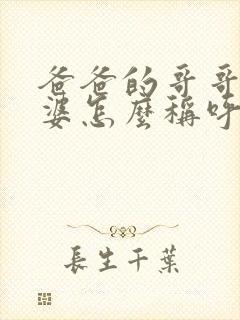 爸爸的哥哥
婆怎麼稱呼
長生千葉